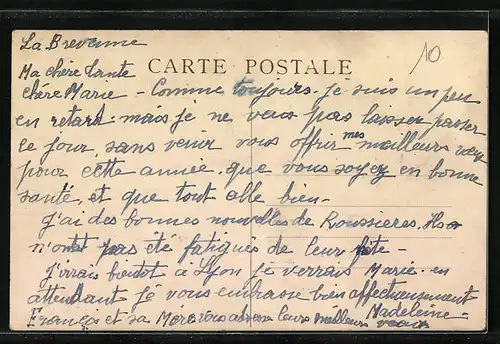 La Brevenne
10
Ma chère tante CARTE POSTALE
chère Marie - Comme toujours je suis un peu
en retard. mais je ne veux pas laisser passer
ce jour, sans venir vous offrir mes meilleurs vœux
pour cette année, que vous soyez en bonne
santé, et que tout aille bien -
J'ai des bonnes nouvelles de Roussieres. Ils
n'ont pas été fatigués de leur fête -
J'irrais bientot à Lyon je verrais Marie. en
attendant je vous embrasse bien affectueusement
Madeleine -
François et sa Mere vous adresse leurs meilleurs vœux